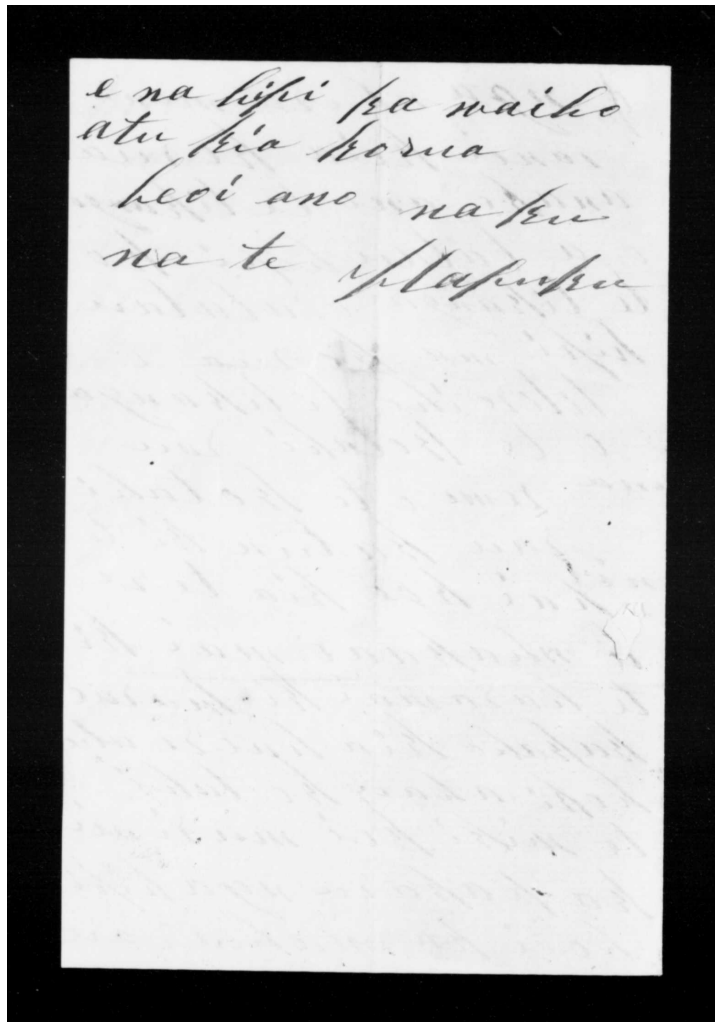 e na hipi ka waiho
atu kia korua
heoi ano na ku
na te Hapuku